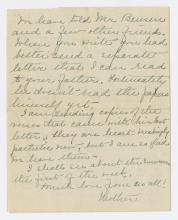 I've told Mr. Benson
and a few other friends.
When you write you had
better send a separate
letter that I can read
to your father. Fortunately
he doesn't read the papers
himself yet.
I am sending copies of the
notes that came with
letter, they are heart-
but I am so glad
for have them.
I shall see about the
the first of the week.
Much love from us all!
Mother.